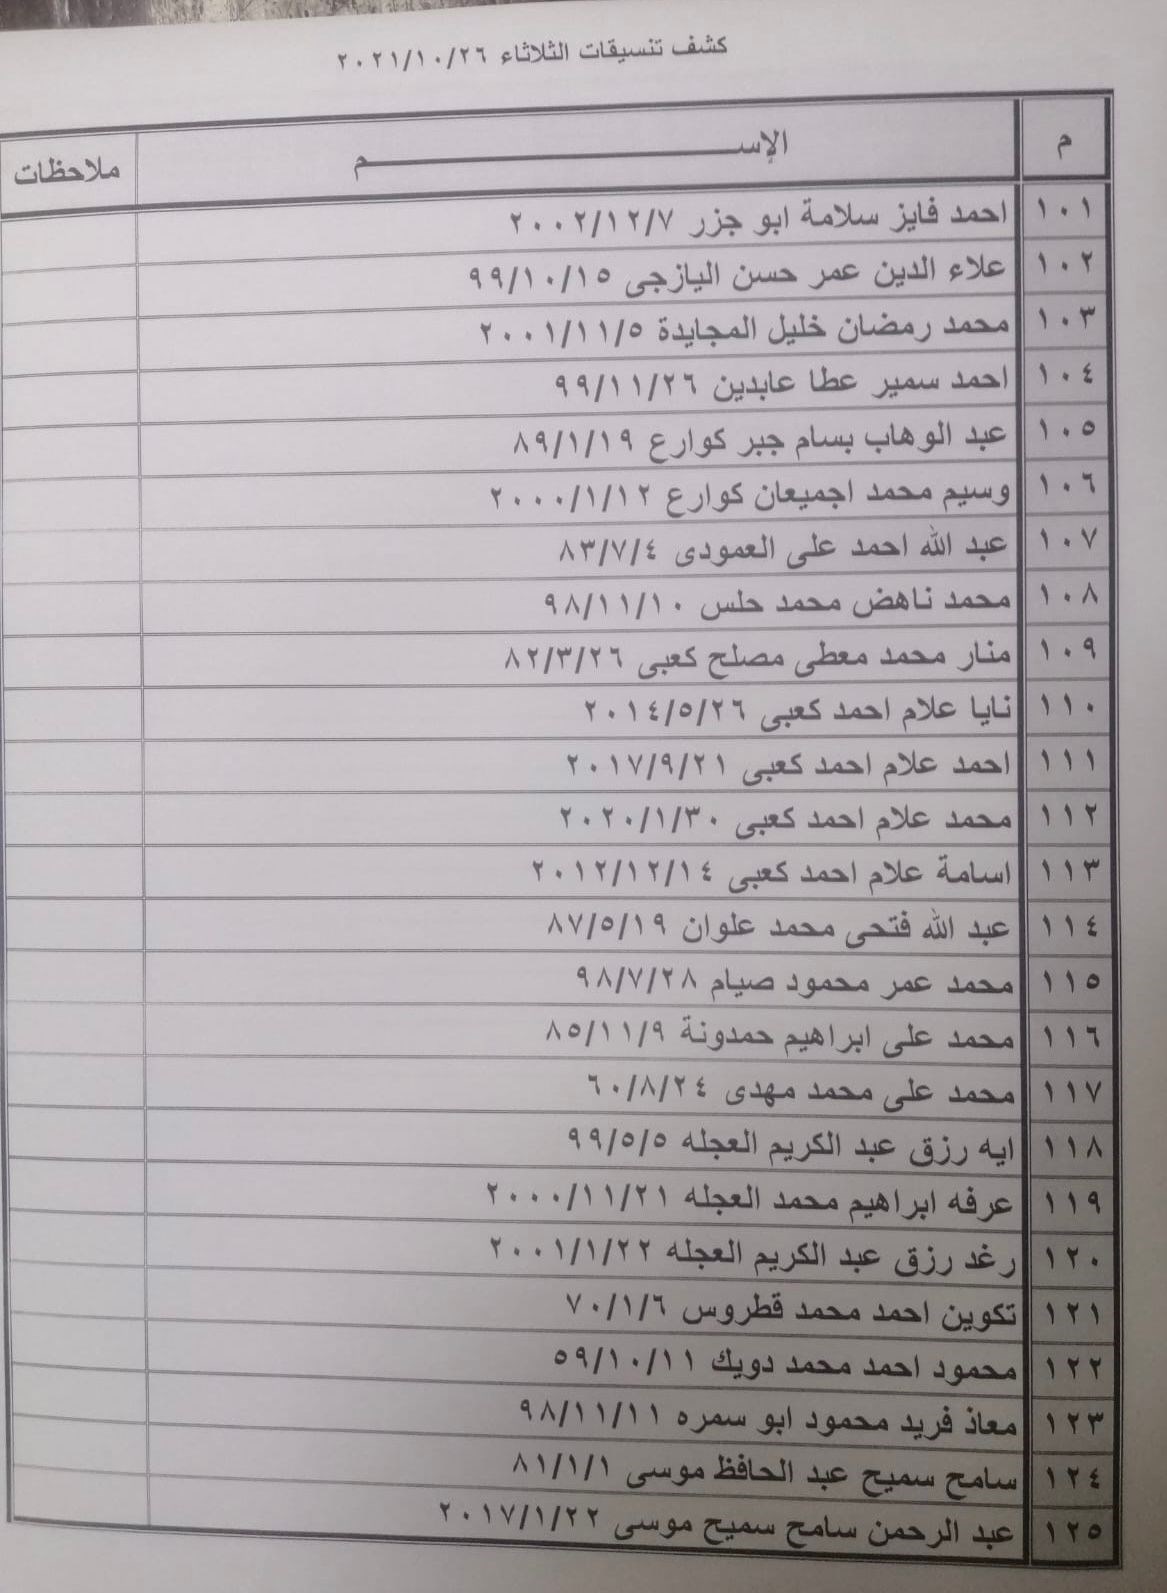 كشف تنسيقات الثلاثاء ٢٠٢١/١٠/٢٦
م الإســـــــــم ملاحظات
١٠١ احمد فايز سلامة ابو جزر ٢٠٠٢/١٢/٧
١٠٢ علاء الدين عمر حسن اليازجى ٩٩/١٠/١٥
١٠٣ محمد رمضان خليل المجايدة ٢٠٠١/١١/٥
١٠٤ احمد سمير عطا عابدين ٩٩/١١/٢٦
١٠٥ عبد الوهاب بسام جبر كوارع ٨٩/١/١٩
١٠٦ وسيم محمد اجميعان كوارع ٢٠٠٠/١/١٢
١٠٧ عبد الله احمد على العمودى ٨٣/٧/٤
١٠٨ محمد ناهض محمد حلس ٩٨/١١/١٠
١٠٩ منار محمد معطى مصلح كعبى ٨٢/٣/٢٦
١١٠ نايا علام احمد كعبى ٢٠١٤/٥/٢٦
١١١ احمد علام احمد كعبى ٢٠١٧/٩/٢١
١١٢ محمد علام احمد كعبى ٢٠٢٠/١/٣٠
١١٣ اسامة علام احمد كعبى ٢٠١٢/١٢/١٤
١١٤ عبد الله فتحى محمد علوان ٨٧/٥/١٩
١١٥ محمد عمر محمود صيام ٩٨/٧/٢٨
١١٦ محمد على ابراهيم حمدونة ٨٥/١١/٩
١١٧ محمد على محمد مهدى ٦٠/٨/٢٤
١١٨ ايه رزق عبد الكريم العجله ٩٩/٥/٥
١١٩ عرفه ابراهيم محمد العجله ٢٠٠٠/١١/٢١
١٢٠ رغد رزق عبد الكريم العجله ٢٠٠١/١/٢٢
١٢١ تكوين احمد محمد قطروس ٧٠/١/٦
١٢٢ محمود احمد محمد دويك ٥٩/١٠/١١
١٢٣ معاذ فريد محمود ابو سمره ٩٨/١١/١١
١٢٤ سامح سميح عبد الحافظ موسى ٨١/١/١
١٢٥ عبد الرحمن سامح سميح موسى ٢٠١٧/١/٢٢